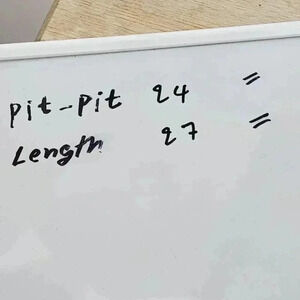 pit-pit 24 =
Length 27 =